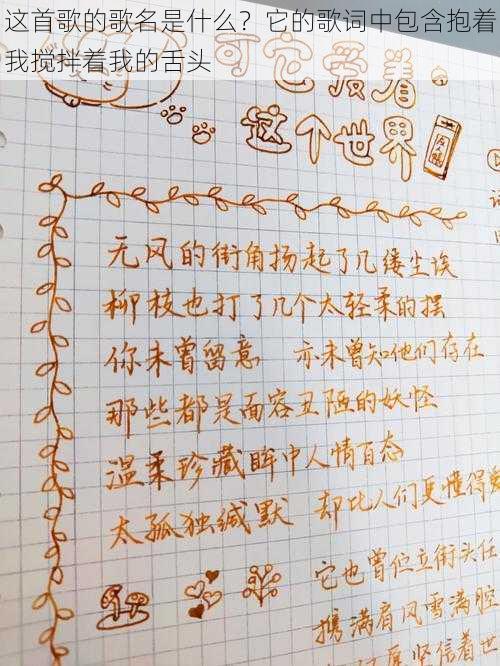 这首歌的歌名是什么？它的歌词中包含抱着
我搅拌着我的舌头
可它爱着
这个世界
友人帐
无风的街角扬起了几缕尘埃
柳枝也打了几个太轻柔的摆
你未曾留意 亦未曾知他们存在
那些都是面容丑陋的妖怪
温柔珍藏眸中人情百态
太孤独缄默 却比人们更懂得
它也曾位立街头任
携满肩风雪满腔
坚信着世